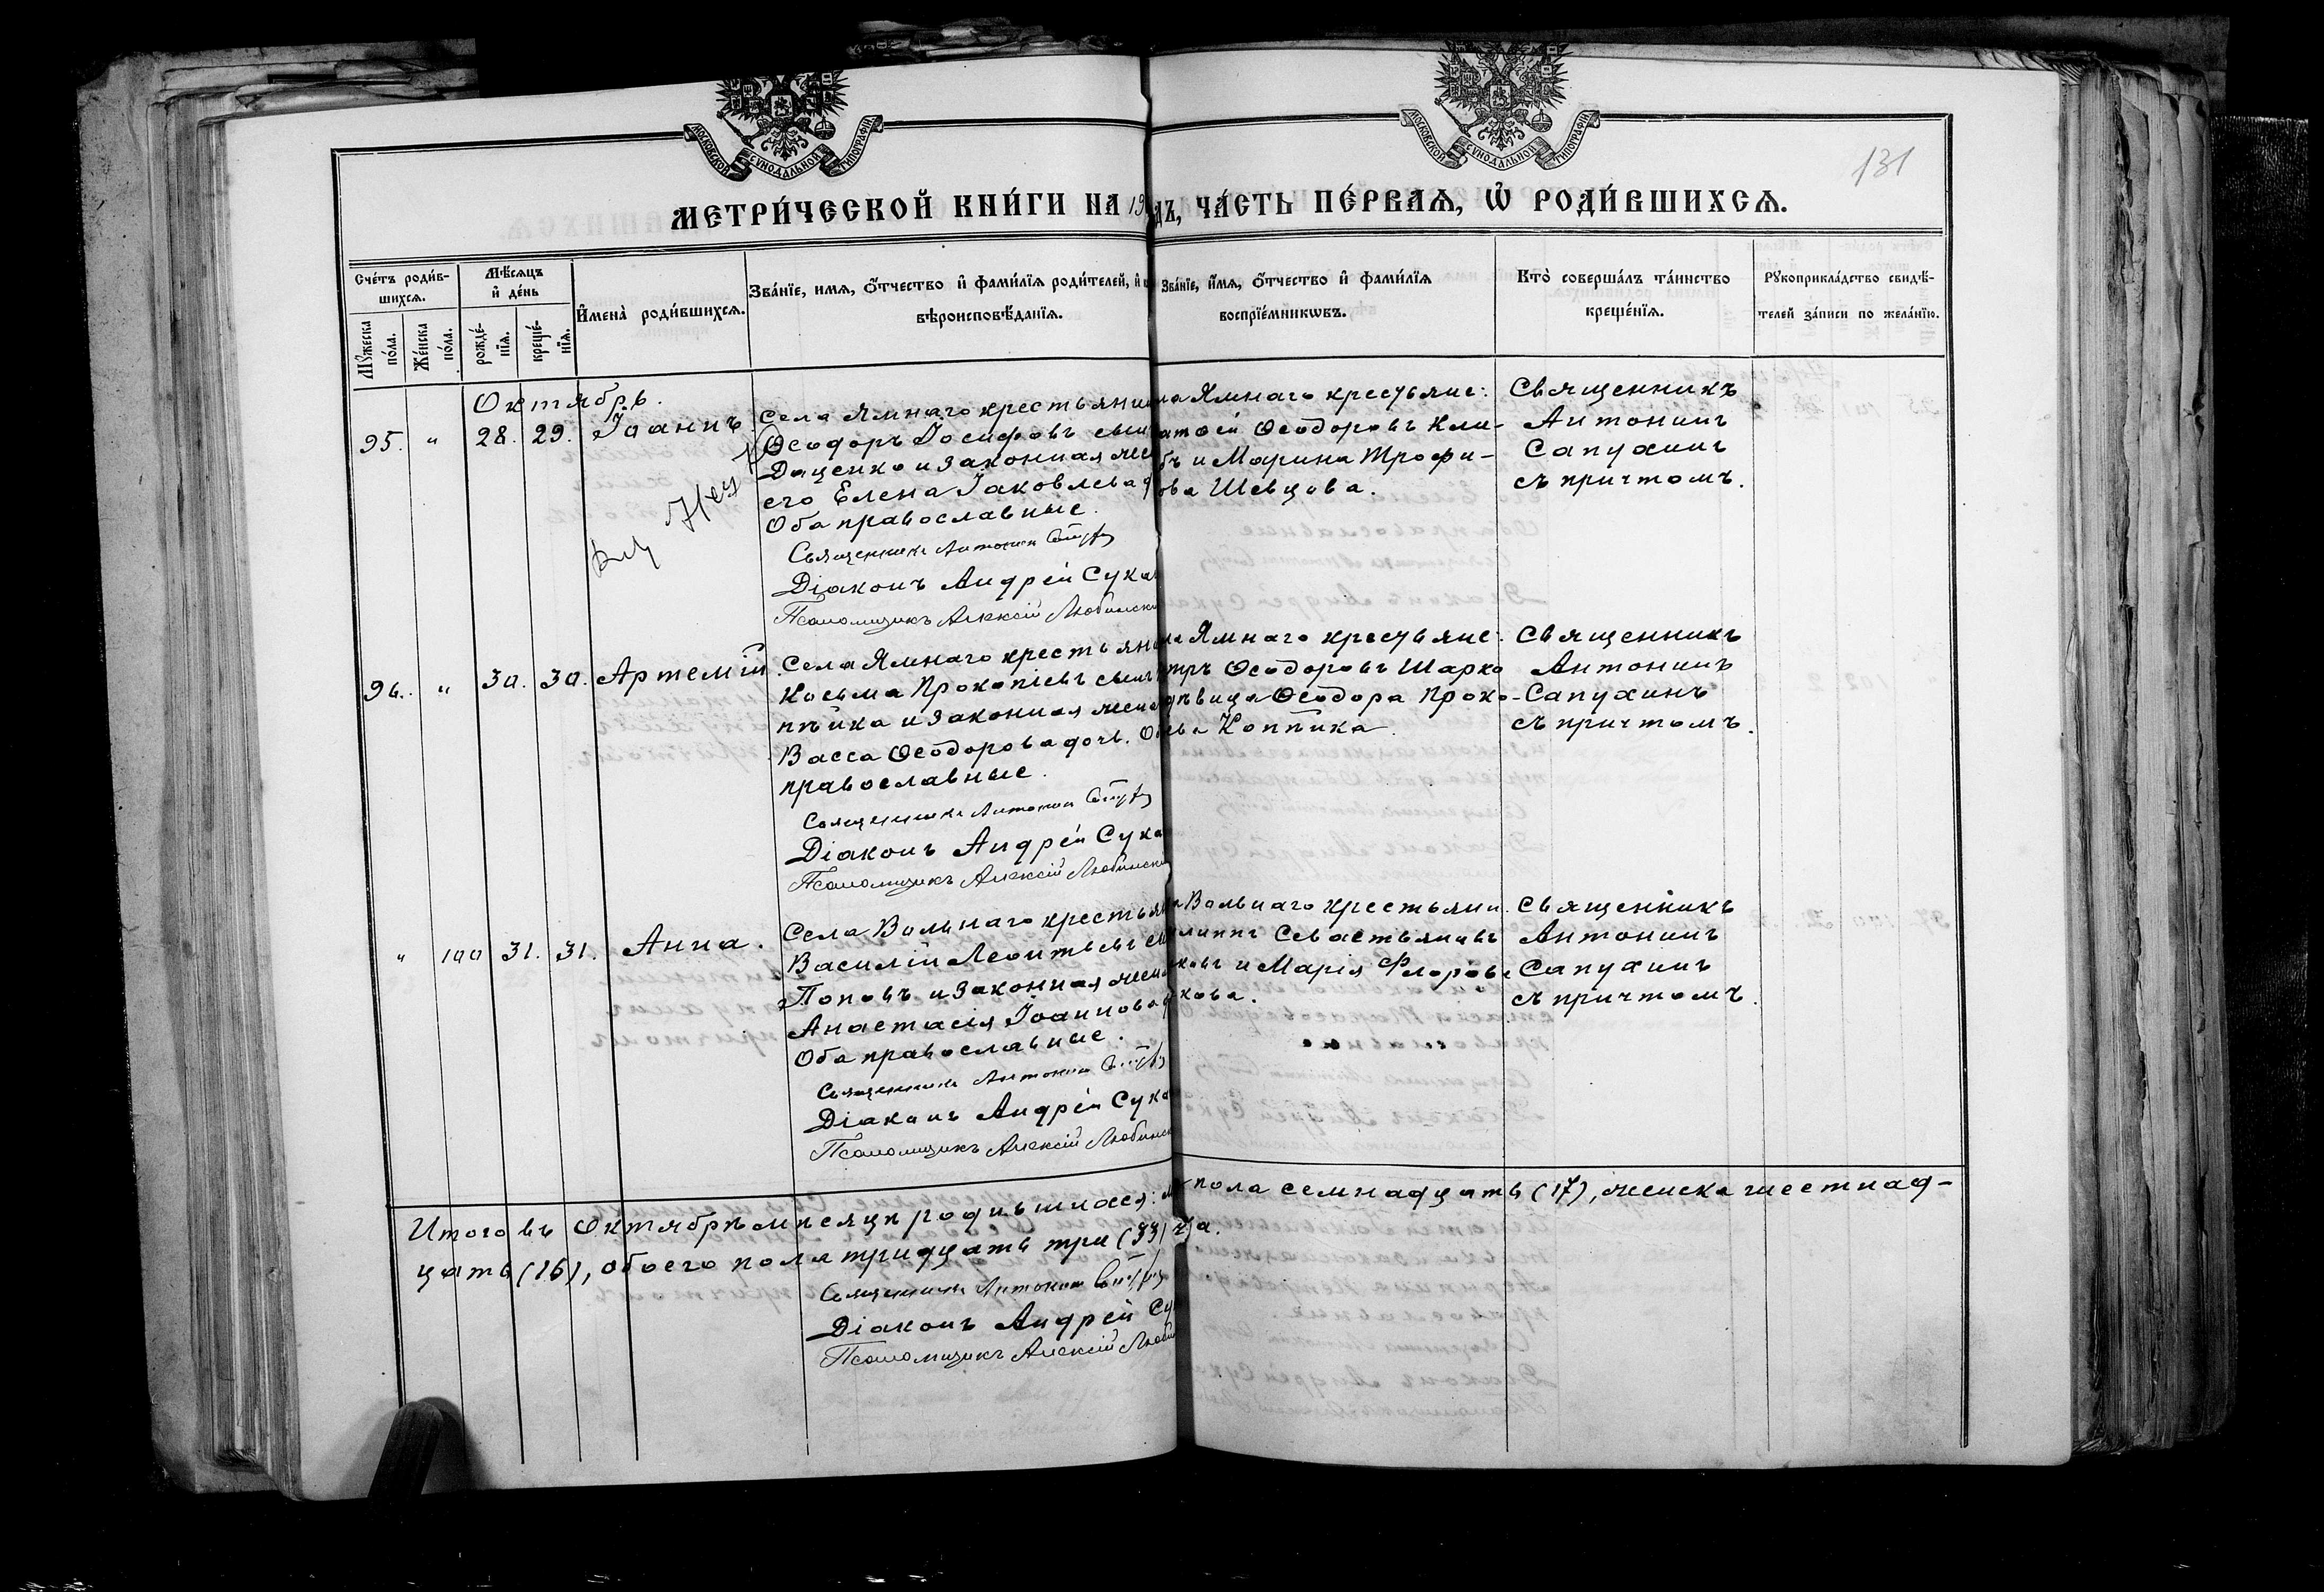 131
МОСКОВСКОЙ СУНОДАЛЬНОЙ ТИПОГРАФІИ
МОСКОВСКОЙ СУНОДАЛЬНОЙ ТИПОГРАФІИ
МЕТРИ́ЧЕСКОЙ КНИ́ГИ НА 19 дъ, ЧА́СТЬ ПЕ́РВАѦ, Ѡ҆ РОДИ́ВШИХСѦ.
Сче́тъ роди́в-
шихсѧ.
Мѣ́сѧцъ
и҆ де́нь
Мꙋжеска по́ла.
Же́нска по́ла.
рожде́-
нїѧ.
креще́-
нїѧ.
И҆мена̀ роди́вшихсѧ.
Зва́нїе, имѧ, ѻ҆́тчество и҆ фами́лїѧ роди́телей, и҆
вѣроисповѣ́данїѧ.
Зва́нїе, и҆́мѧ, ѻ҆́тчество и҆ фами́лїѧ
воспрїе́мникѡвъ.
Кто̀ соверша́лъ та́инство
креще́нїѧ.
Рꙋкоприкла́дство свидѣ́-
телей за́писи по жела́нїю.
Октябрь.
95. " 28. 29. Іоаннъ.
Села Ямнаго крестьянин
Ѳеодоръ Іосифовъ сын
Доценко и законная жен
его Елена Іаковлева д
Оба православные.
Священникъ Антонин
Діаконъ Андрей Сука
Псаломщикъ Алексій Любински
на Ямнаго крестьяне:
атѳій Ѳеодоровъ Кли-
бъ и Марина Трофи-
ова Шевцова.
Священникъ
Антонинъ
Сапухинъ
съ причтомъ.
96. " 30. 30. Артемій.
Села Ямнаго крестьян
Косьма Прокопіевъ сынъ
пѣйка и законная жена
Васса Ѳеодорова дочь. О
православные.
Священникъ Антонин
Діаконъ Андрей Сука
Псаломщикъ Алексій Любински
ла Ямнаго крестьяне
тръ Ѳеодоровъ Шарко
дѣвица Ѳеодора Проко-
ва Коппика.
Священникъ
Антонинъ
Сапухинъ
съ причтомъ.
" 100 31. 31. Анна.
Села Вольнаго крестьян
Василій Леонтьевъ сы
Поповъ и законная жен
Анастасія Іоаннова д
Оба православные.
Священникъ Антонин
Діаконъ Андрей Сука
Псаломщикъ Алексій Любинск
а Вольнаго крестьяни.
липпъ Севастьяновъ
ковъ и Марія Флорова
кова.
Священникъ
Антонинъ
Сапухинъ
съ причтомъ.
Итого въ Октябрѣ мѣсяцѣ родившихся: м пола семнадцать (17), женска шестнад-
цать (16), обоего пола тридцать три (33) ч а.
Священникъ Антонин
Діаконъ Андрей Су
Псаломщикъ Алексій Люби